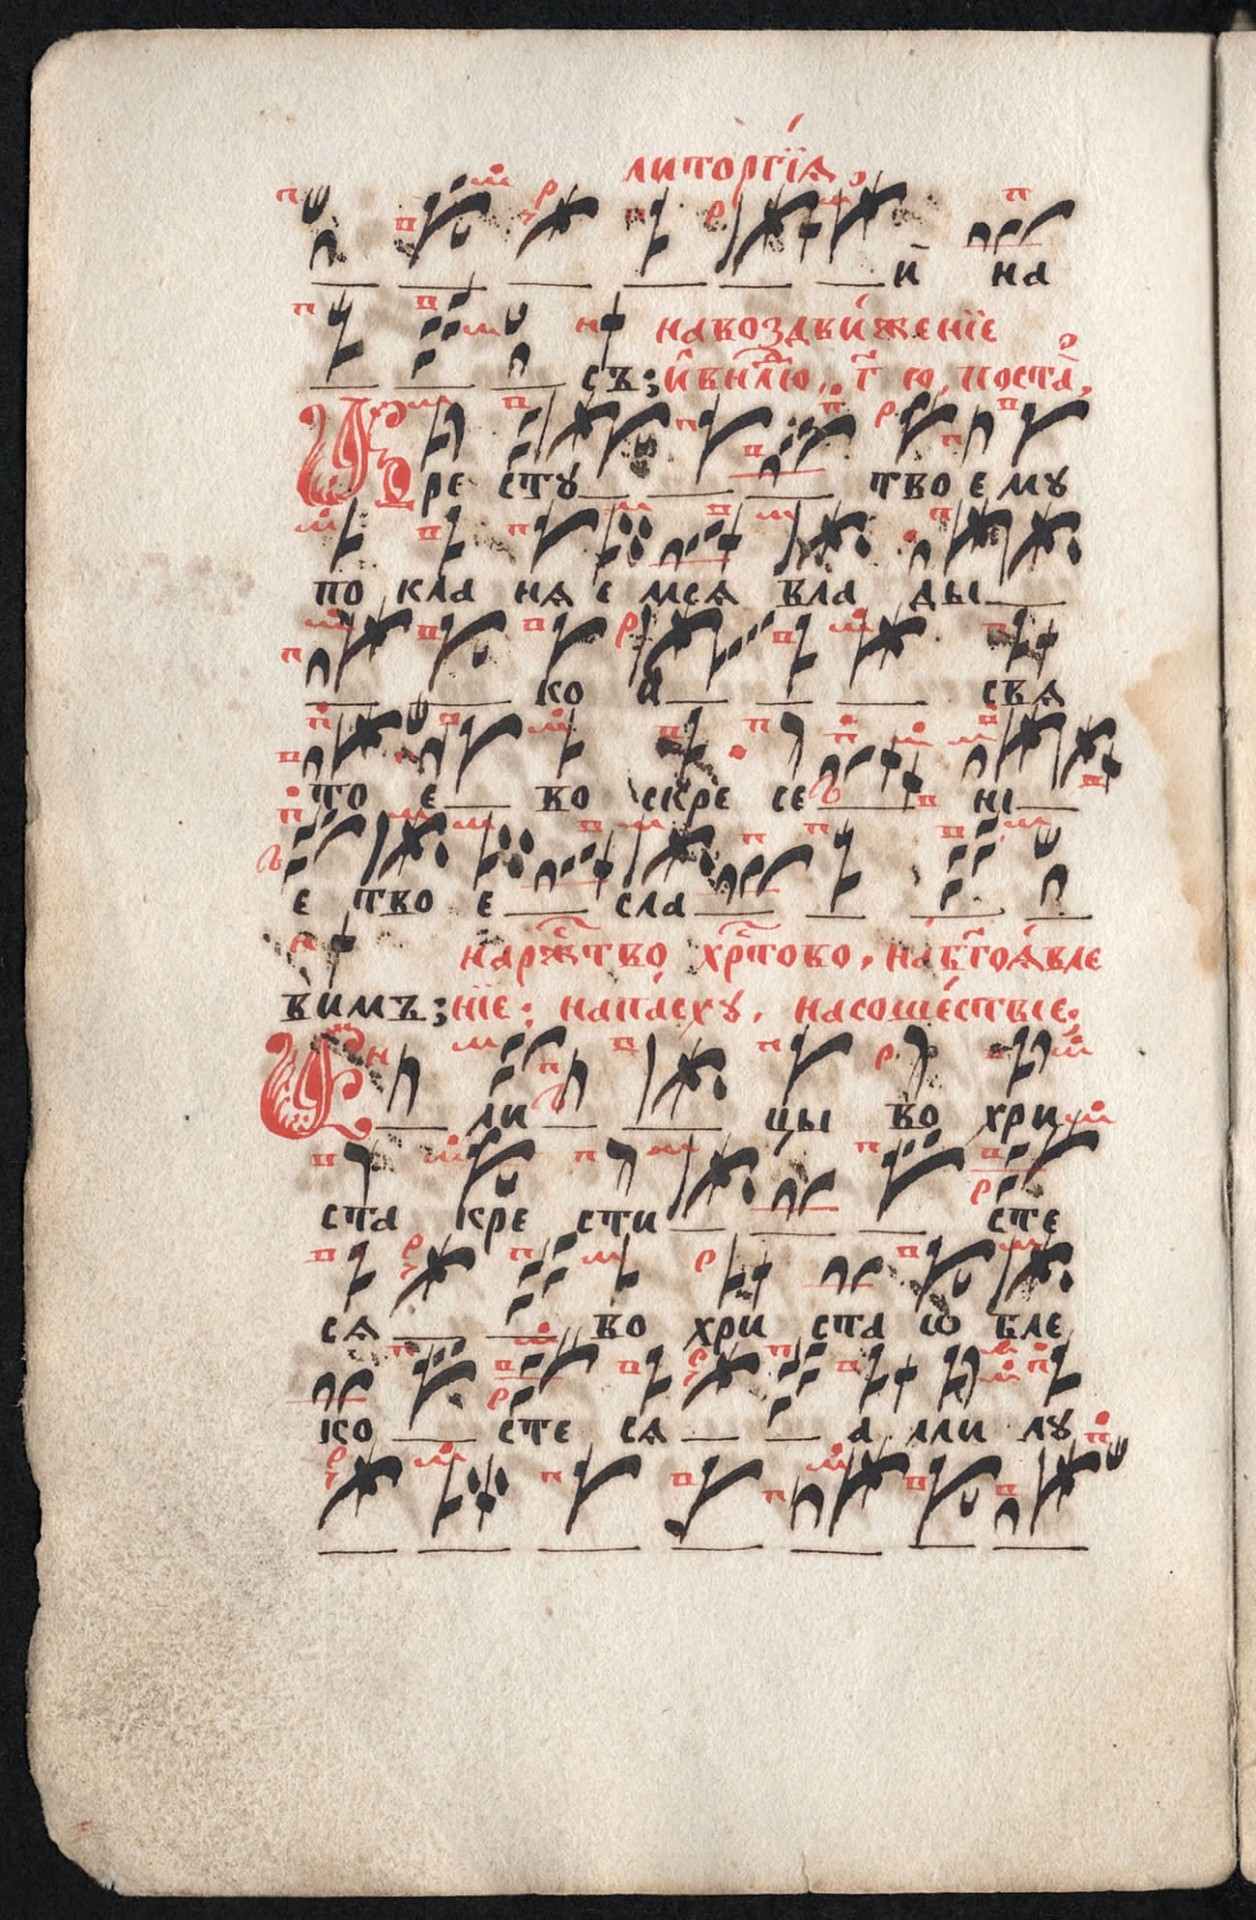 литоргїѧ,
й на
навоздви́женїе
съ; и҆внл҃ю, г҃ ю, поста̀,
Кре сту твоему
по кла нѧ е мсѧ вла ды
ко а свѧ
то е во скре се нї
е тво е сла
нарж҃тво хр҃тово, наб҃гоѧ́вле
вимъ; нїе: напа́сху, насоше́ствїе;
Е ли цы во хри
ста кре сти сте
сѧ во хри ста ѡ бле
ко сте сѧ а лли лу